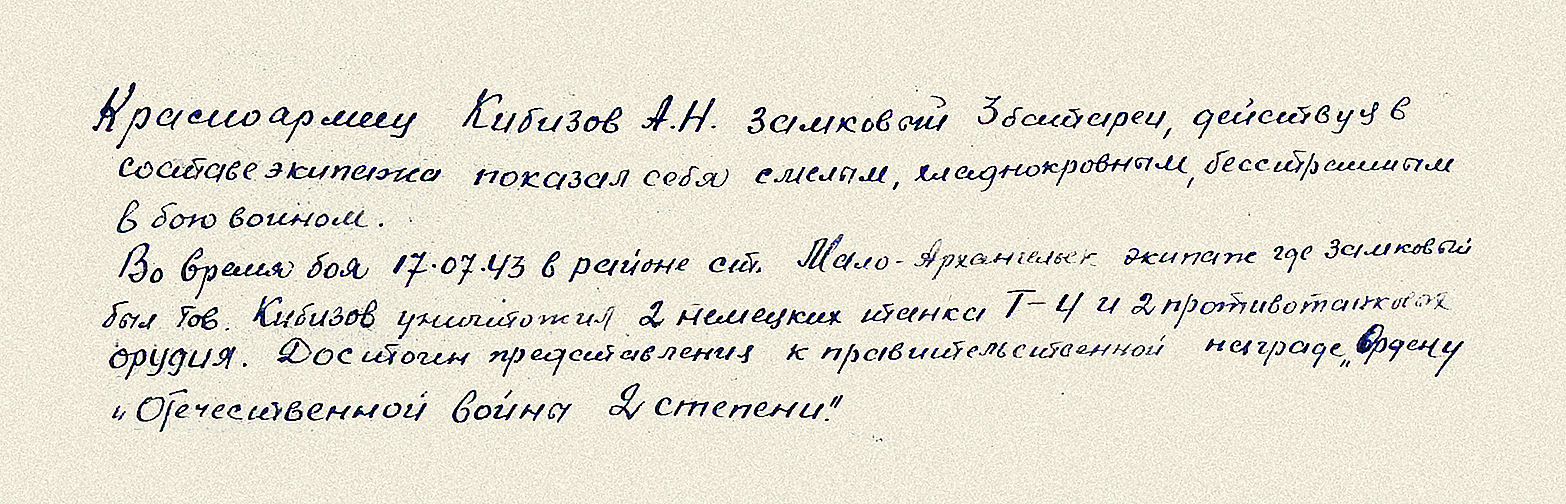 Красноармеец Кибизов А.Н. замковый 3 батареи, действуя в
составе экипажа показал себя смелым, хладнокровным, бесстрашным
в бою воином.
Во время боя 17.07.43 в районе ст. Мало-Архангельск экипаж где замковый
был тов. Кибизов уничтожил 2 немецких танка Т-4 и 2 противотанковых
орудия. Достоин представления к правительственной награде „Ордену
„Отечественной войны 2 степени"